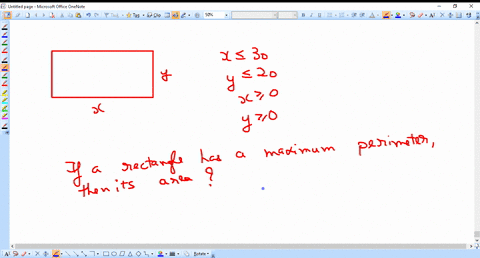 Untitled page - Microsoft Office OneNote
50%
x ≤ 30
y
y ≤ 20
x
x ≥ 0
y ≥ 0
If a rectangle has a maximum perimeter,
then its area?
Rotate